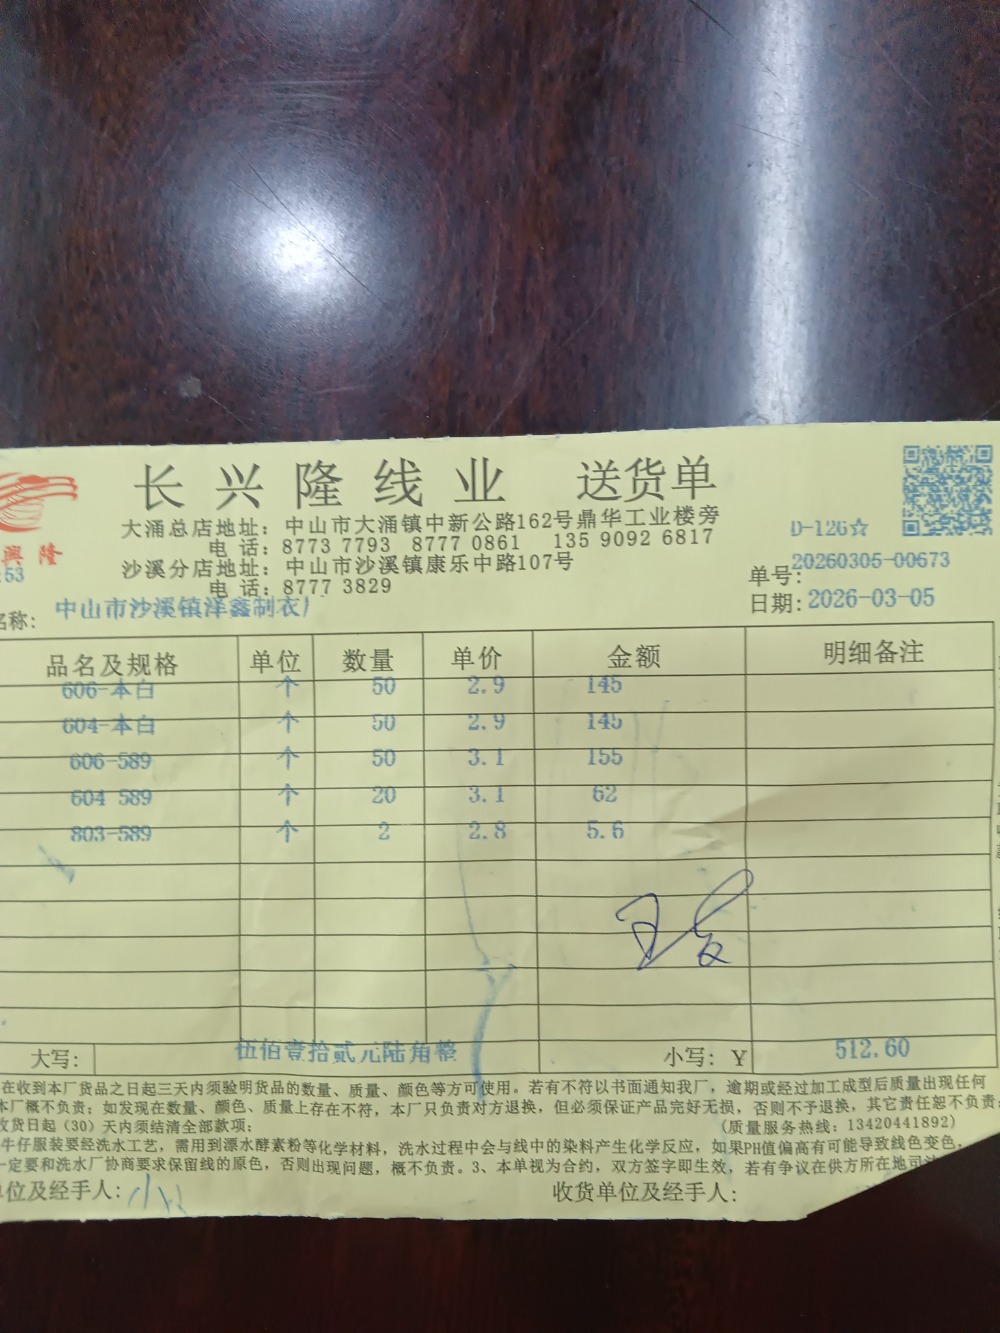 长兴隆线业 送货单
大涌总店地址：中山市大涌镇中新公路162号鼎华工业楼旁
电 话：8773 7793 8777 0861 135 9092 6817
沙溪分店地址：中山市沙溪镇康乐中路107号
电 话：8777 3829
D-126☆
興隆
:53
单号：20260305-00673
日期：2026-03-05
名称：中山市沙溪镇洋鑫制衣厂
品名及规格 单位 数量 单价 金额 明细备注
606-本白 个 50 2.9 145
604-本白 个 50 2.9 145
606-589 个 50 3.1 155
604 589 个 20 3.1 62
803-589 个 2 2.8 5.6
大写： 伍佰壹拾贰元陆角整 小写：¥ 512.60
在收到本厂货品之日起三天内须验明货品的数量、质量、颜色等方可使用。若有不符以书面通知我厂，逾期或经过加工成型后质量出现任何
本厂概不负责；如发现在数量、颜色、质量上存在不符，本厂只负责对方退换，但必须保证产品完好无损，否则不予退换，其它责任恕不负责；
收货日起（30）天内须结清全部款项； （质量服务热线：13420441892）
牛仔服装要经洗水工艺，需用到漂水酵素粉等化学材料，洗水过程中会与线中的染料产生化学反应，如果PH值偏高有可能导致线色变色，
一定要和洗水厂协商要求保留线的原色，否则出现问题，概不负责。3、本单视为合约，双方签字即生效，若有争议在供方所在地司法
单位及经手人： 收货单位及经手人：